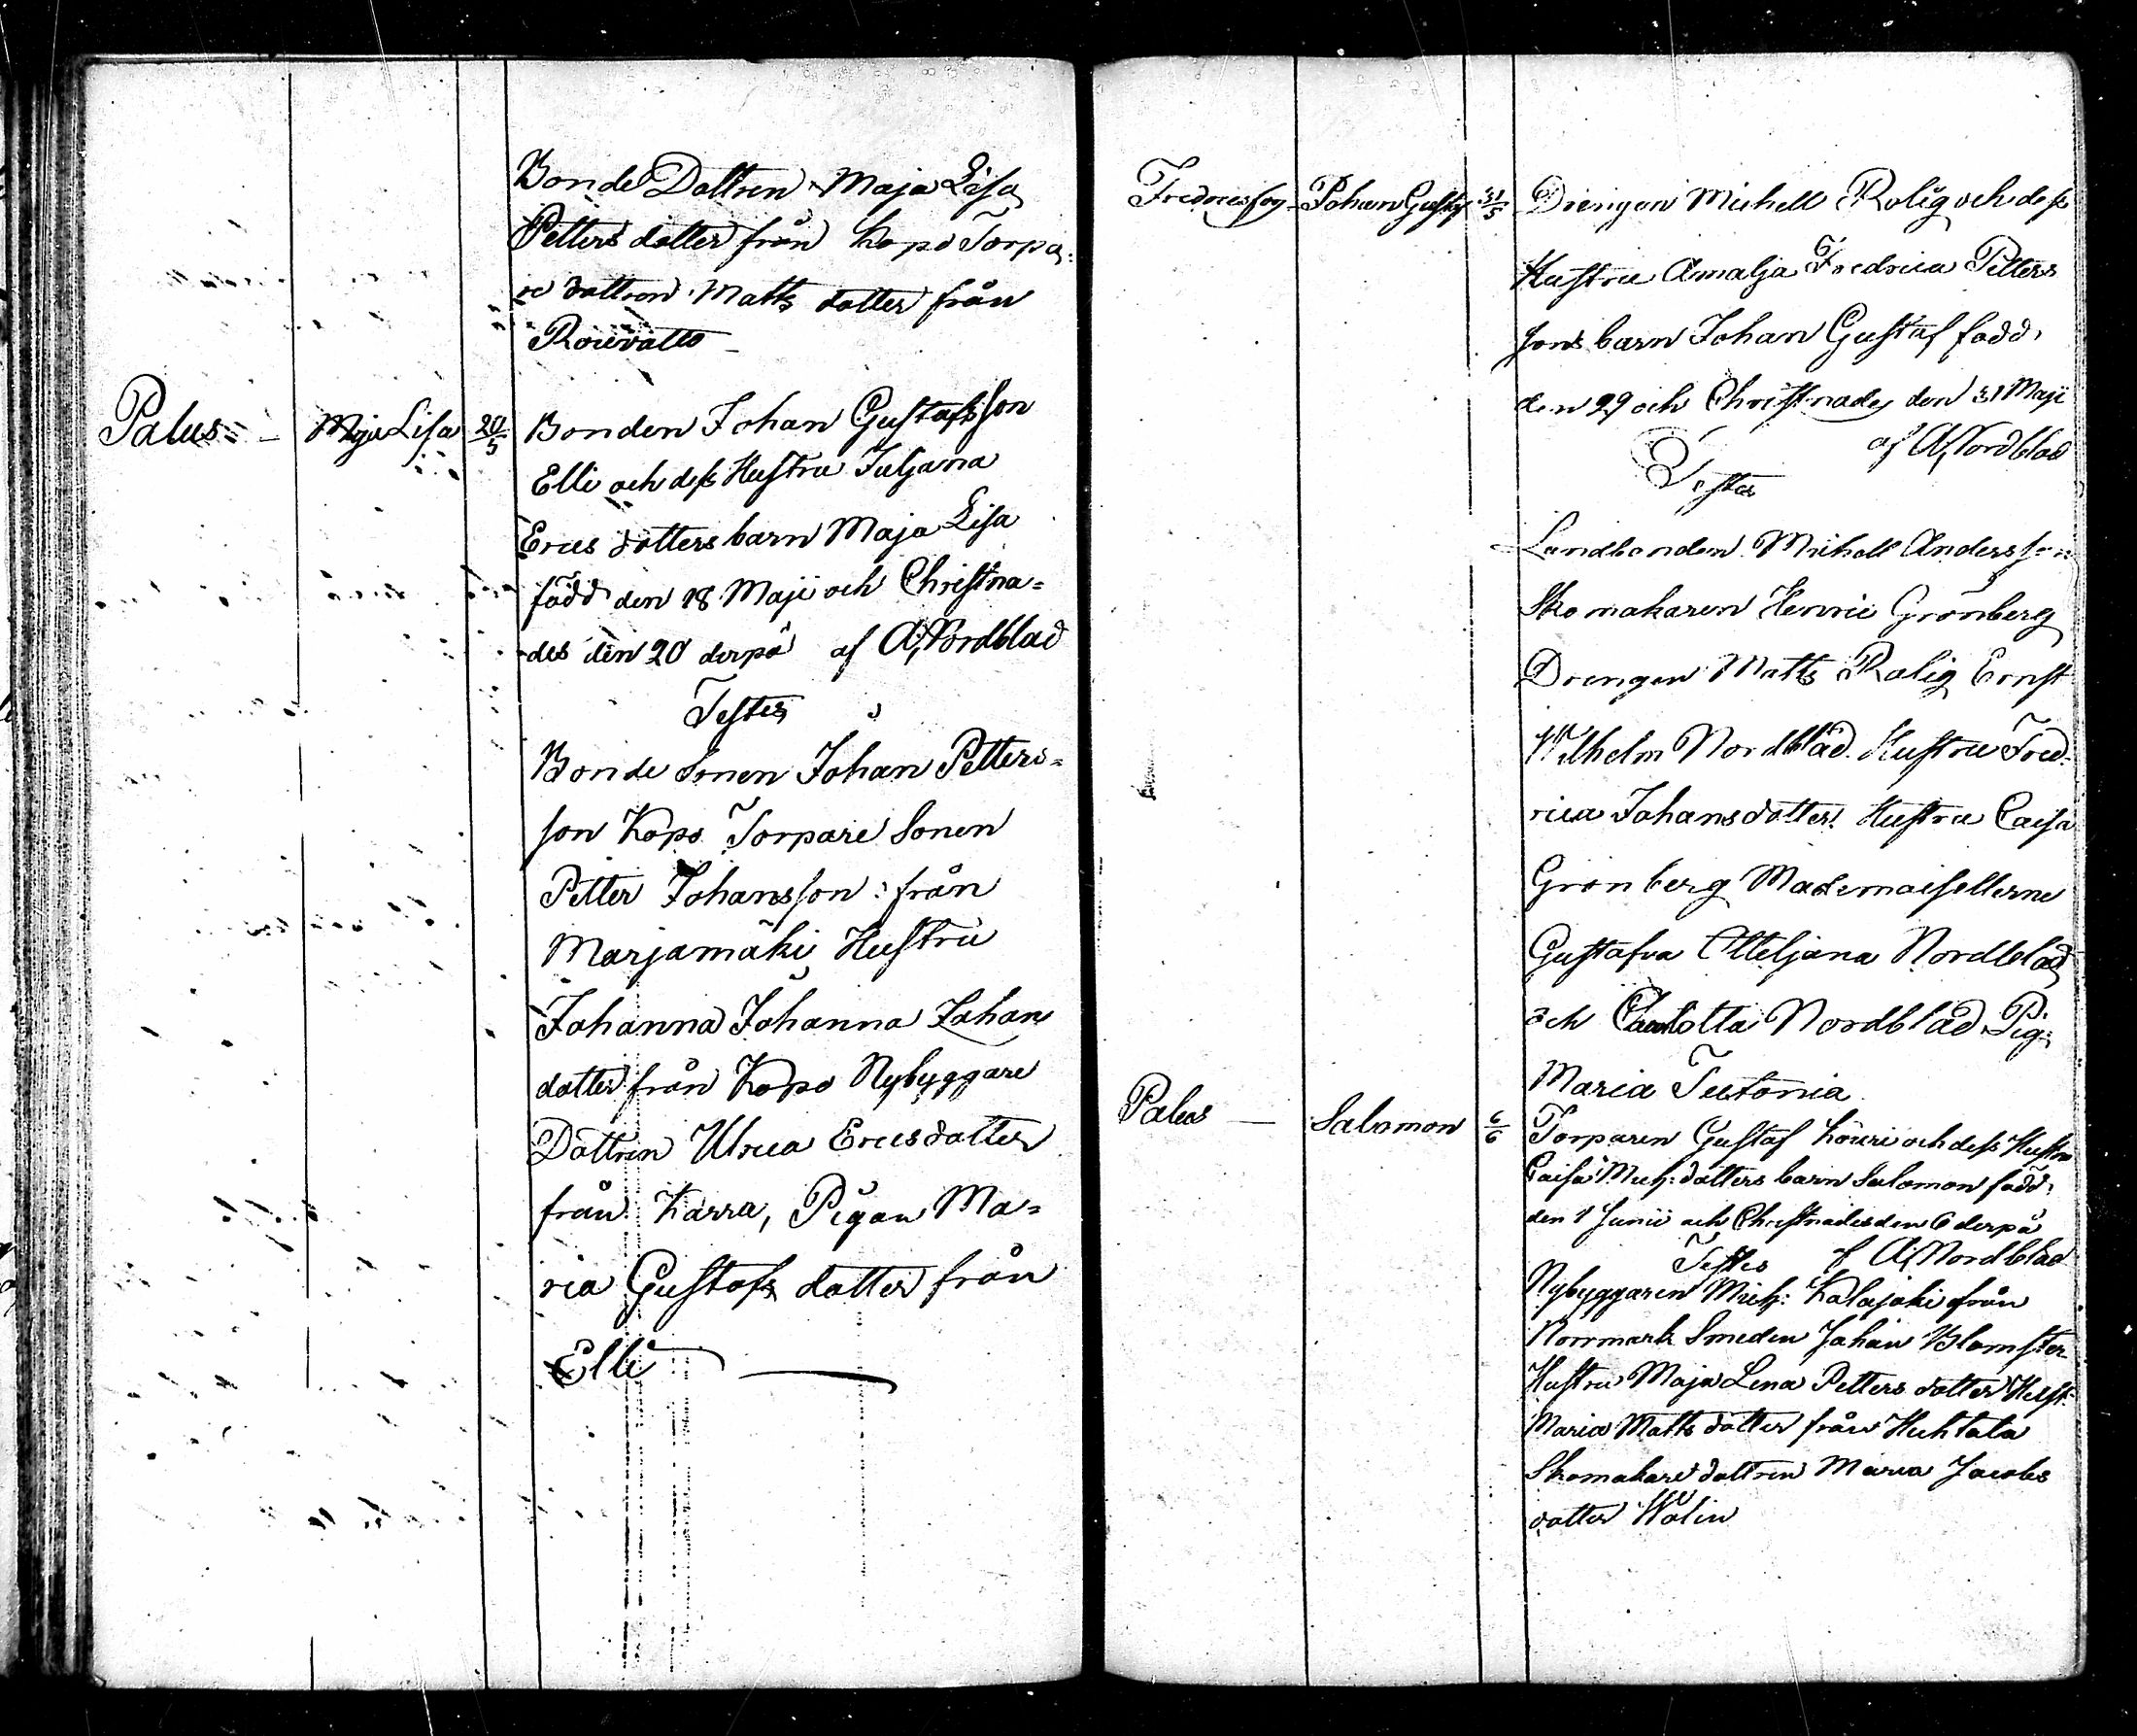 Bonde Dottren Maja Lisa
Petters dotter från Kopo Torpa:
re dottren Matts dotter från
Palus Maja Lisa 20/5 Bonden Johan Gustafsson
Elli och dess Hustru Juljana
Erics dotters barn Maja Lisa
född den 18 Maji och Christna=
des den 20 derpå af A, Nordblad
Testes
Bonde Sonen Johan Petters=
son Kopo Torpare Sonen
Petter Johansson från
Marjamäki Hustru
Johanna Johanna Johans
dotter från Kopo Nybyggare
Dottren Ulrica Ericsdotter
från Karra, Pigan Ma=
ria Gustafs dotter från
Elli
Johan Gustaf 31/5 Drengen Michell Rolig och dess
Hustru Amalja Fredrica Petters
sons barn Johan Gustaf född
den 29 och Christnades den 31 Maji
af A, Nordblad
Testes
Landbonden Michell Andersson
Skomakaren Henric Grönberg
Drengen Matts Rolig Ernst
Wilhelm Nordblad Hustru Fred:
rica Johansdotter Hustru Caisa
Grönberg Mademoisellerne
Gustafva Otteljana Nordblad
och Charlotta Nordblad Pig:
Maria Teetonia
Palus Salomon 6/6 Torparen Gustaf Köuri och dess Hustru
Caisa Mich: dotters barn Salomon född
den 1 Junii och Christnades den 6 derpå
Testes af A, Nordblad
Nybyggaren Mich: Kalajoki från
Norrmark Smeden Johan Blomster
Hustru Maja Lena Petters dotter Hust:
Maria Matts dotter från Huhtala
Skomakare dottren Maria Jacobs
dotter Wolin